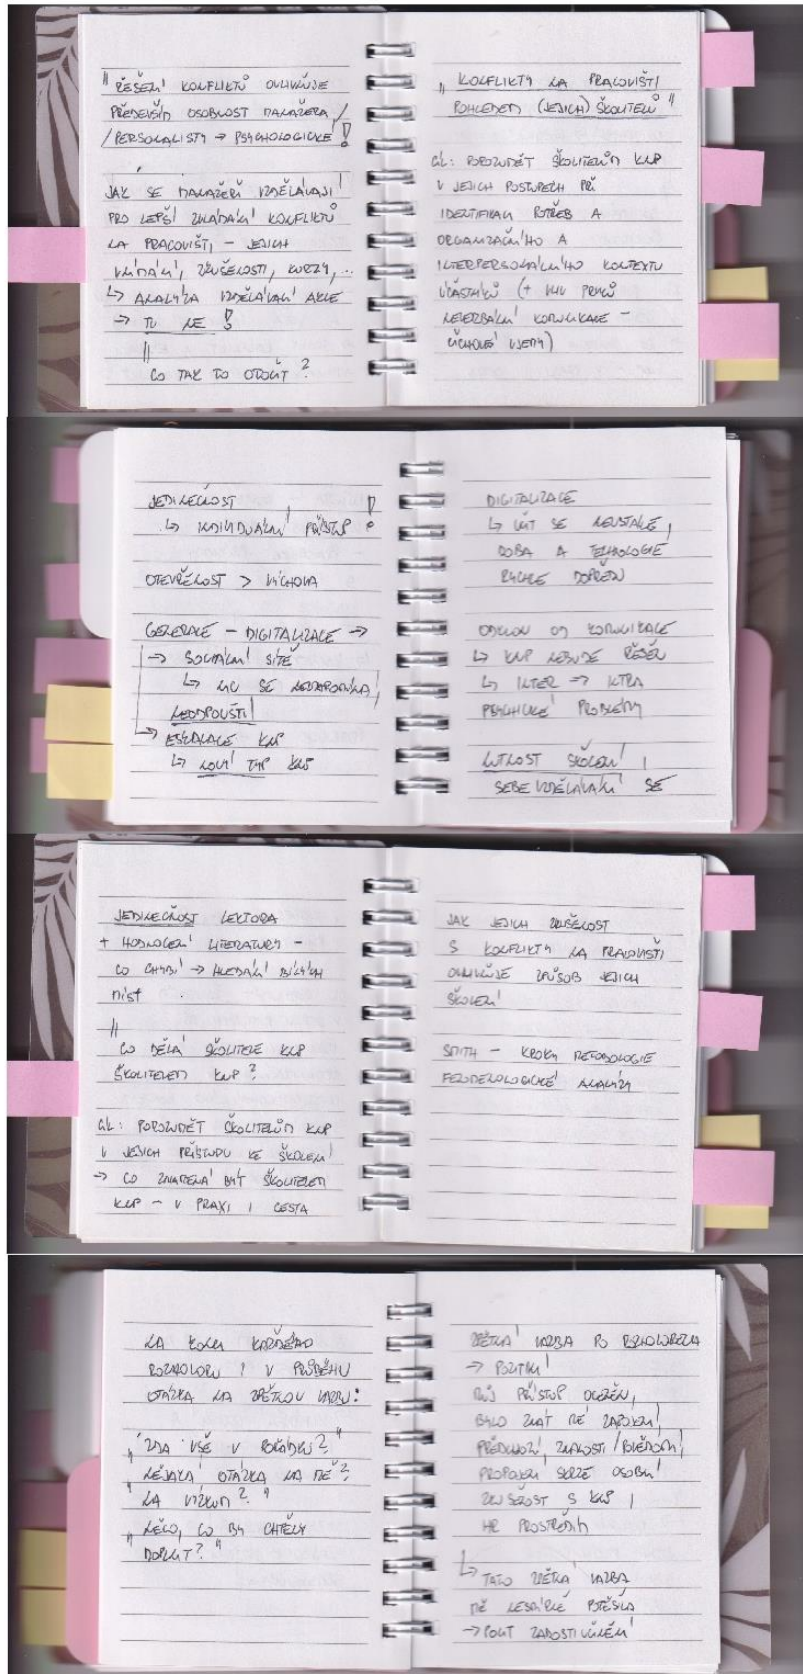 "ŘEŠENÍ KONFLIKTŮ OVLIVŇUJE
PŘEDEVŠÍM OSOBNOST MANAŽERA/
/PERSONALISTY → PSYCHOLOGICKÉ!
JAK SE MANAŽEŘI VZDĚLÁVAJÍ
PRO LEPŠÍ ZVLÁDÁNÍ KONFLIKTŮ
NA PRACOVIŠTI, – JEJICH
VNÍMÁNÍ, ZKUŠENOSTI, KURZY, ..
↳ ANALÝZA VZDĚLÁVACÍ AKCE
→ TU NE !
CO TAK TO OTOČIT ?
"KONFLIKTY NA PRACOVIŠTI
POHLEDEM (JEJICH) ŠKOLITELŮ"
CÍL: POROZUMĚT ŠKOLITELŮM KNP
V JEJICH POSTUPECH PŘI
IDENTIFIKACI POTŘEB A
ORGANIZAČNÍHO A
INTERPERSONÁLNÍHO KONTEXTU
ÚČASTNÍKŮ (+ VLIV PRVKŮ
NEVERBÁLNÍ KOMUNIKACE –
ČICHOVÉ VJEMY)
JEDINEČNOST
↳ INDIVIDUÁLNÍ PŘÍSTUP !
OTEVŘENOST > VÝCHOVA
GENERACE – DIGITALIZACE →
→ SOCIÁLNÍ SÍTĚ
↳ NIC SE NEZAPOMÍNÁ,
NEODPOUŠTÍ
→ ESKALACE KNP
↳ NOVÝ TYP KNP
DIGITALIZACE
↳ UČIT SE NEUSTÁLE,
DOBA A TECHNOLOGIE
RYCHLE DOPŘEDU
ODKLON OD KOMUNIKACE
↳ KNP NEBUDE ŘEŠEN
↳ INTER → INTRA
PSYCHICKÉ PROBLÉMY
NUTNOST ŠKOLENÍ,
SEBEVZDĚLÁVÁNÍ SE
JEDINEČNOST LEKTORA
+ HODNOCENÍ LITERATURY –
CO CHYBÍ → HLEDÁNÍ BÍLÝCH
MÍST
CO DĚLÁ ŠKOLITELE KNP
ŠKOLITELEM KNP ?
CÍL: POROZUMĚT ŠKOLITELŮM KNP
V JEJICH PŘÍSTUPU KE ŠKOLENÍ
→ CO ZNAMENÁ BÝT ŠKOLITELEM
KNP – V PRAXI I CESTA
JAK JEJICH ZKUŠENOST
S KONFLIKTY NA PRACOVIŠTI
OVLIVŇUJE ZPŮSOB JEJICH
ŠKOLENÍ
SMITH – KROKY METODOLOGIE
FENOMENOLOGICKÉ ANALÝZY
NA KONCI KAŽDÉHO
ROZHOVORU I V PRŮBĚHU
OTÁZKA NA ZPĚTNOU VAZBU:
"ZDA VŠE V POŘÁDKU?"
"NĚJAKÁ OTÁZKA NA MĚ?
NA VÝZKUM?"
"NĚCO, CO BY CHTĚLY
DOPLNIT?"
ZPĚTNÁ VAZBA PO ROZHOVORECH
→ POZITIVNÍ
MŮJ PŘÍSTUP OCENĚN,
BYLO ZNÁT MÉ ZAPOJENÍ,
PŘEDCHOZÍ ZNALOSTI/POVĚDOMÍ,
PROPOJENÍ SKRZE OSOBNÍ
ZKUŠENOST S KNP,
HR PROSTŘEDÍM
↳ TATO ZPĚTNÁ VAZBA
MĚ NESMÍRNĚ POTĚŠILA
→ POCIT ZADOSTIUČINĚNÍ